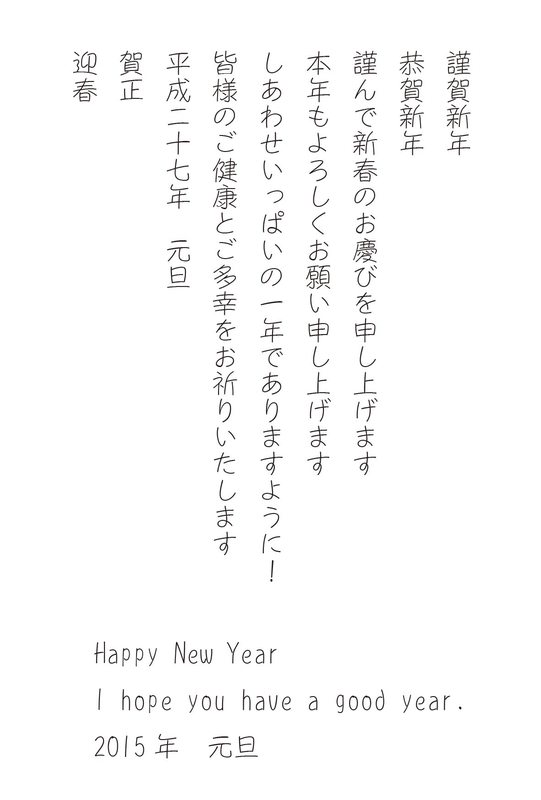 謹賀新年
恭賀新年
謹んで新春のお慶びを申し上げます
本年もよろしくお願い申し上げます
しあわせいっぱいの一年でありますように！
皆様のご健康とご多幸をお祈りいたします
平成二十七年　元旦
賀正
迎春
Happy New Year
I hope you have a good year.
2015年　元旦